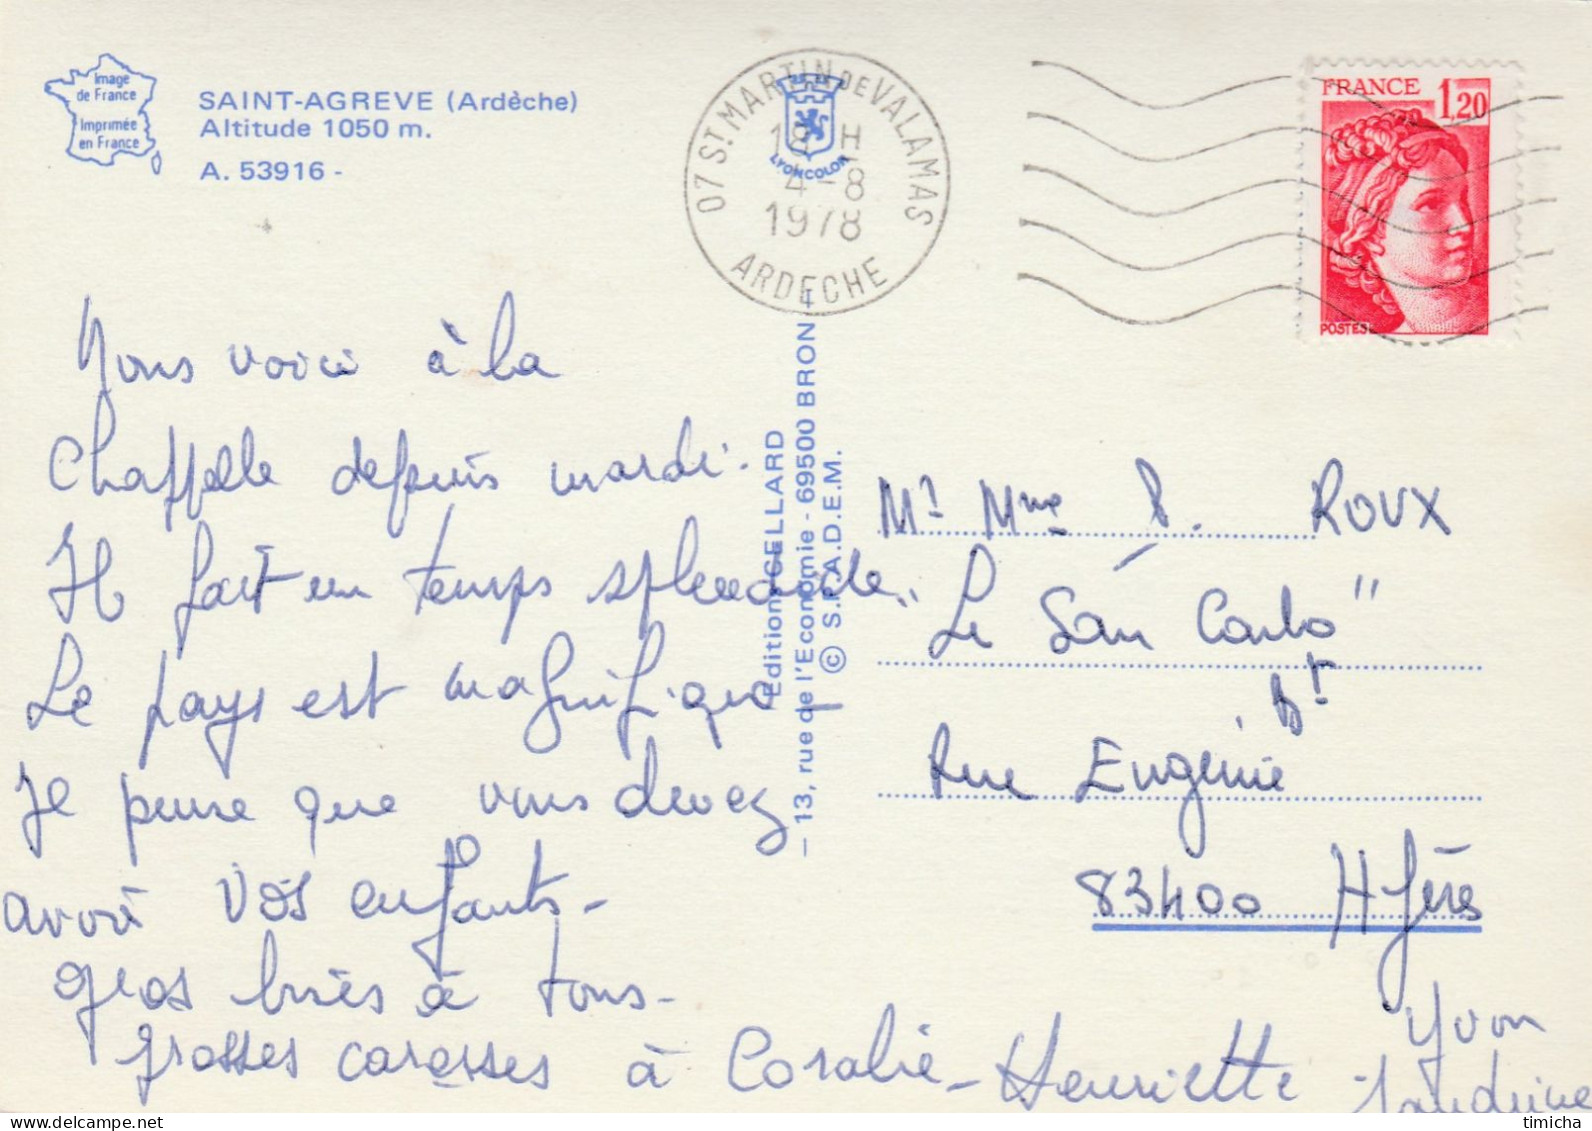 Image
de France
Imprimée
en France
SAINT-AGREVE (Ardèche)
Altitude 1050 m.
A. 53916 -
07 ST MARTIN DE VALAMAS
18 H
4-8
1978
ARDECHE
LYONCOLOR
FRANCE 1,20
POSTES
Nous voici à la
Chappelle depuis mardi.
Il fait un temps splendide
Le pays est magnifique
Je pense que vous devez
avoir vos enfants -
gros bises à tous -
grosses caresses à Coralie - Henriette
Yvon
Sandrine
Editions CELLARD
- 13, rue de l'Economie - 69500 BRON -
© S.P.A.D.E.M.
Mr Mme P. ROUX
"Le San Carlo"
Bt
Rue Eugénie
83400 Hyères
timicha